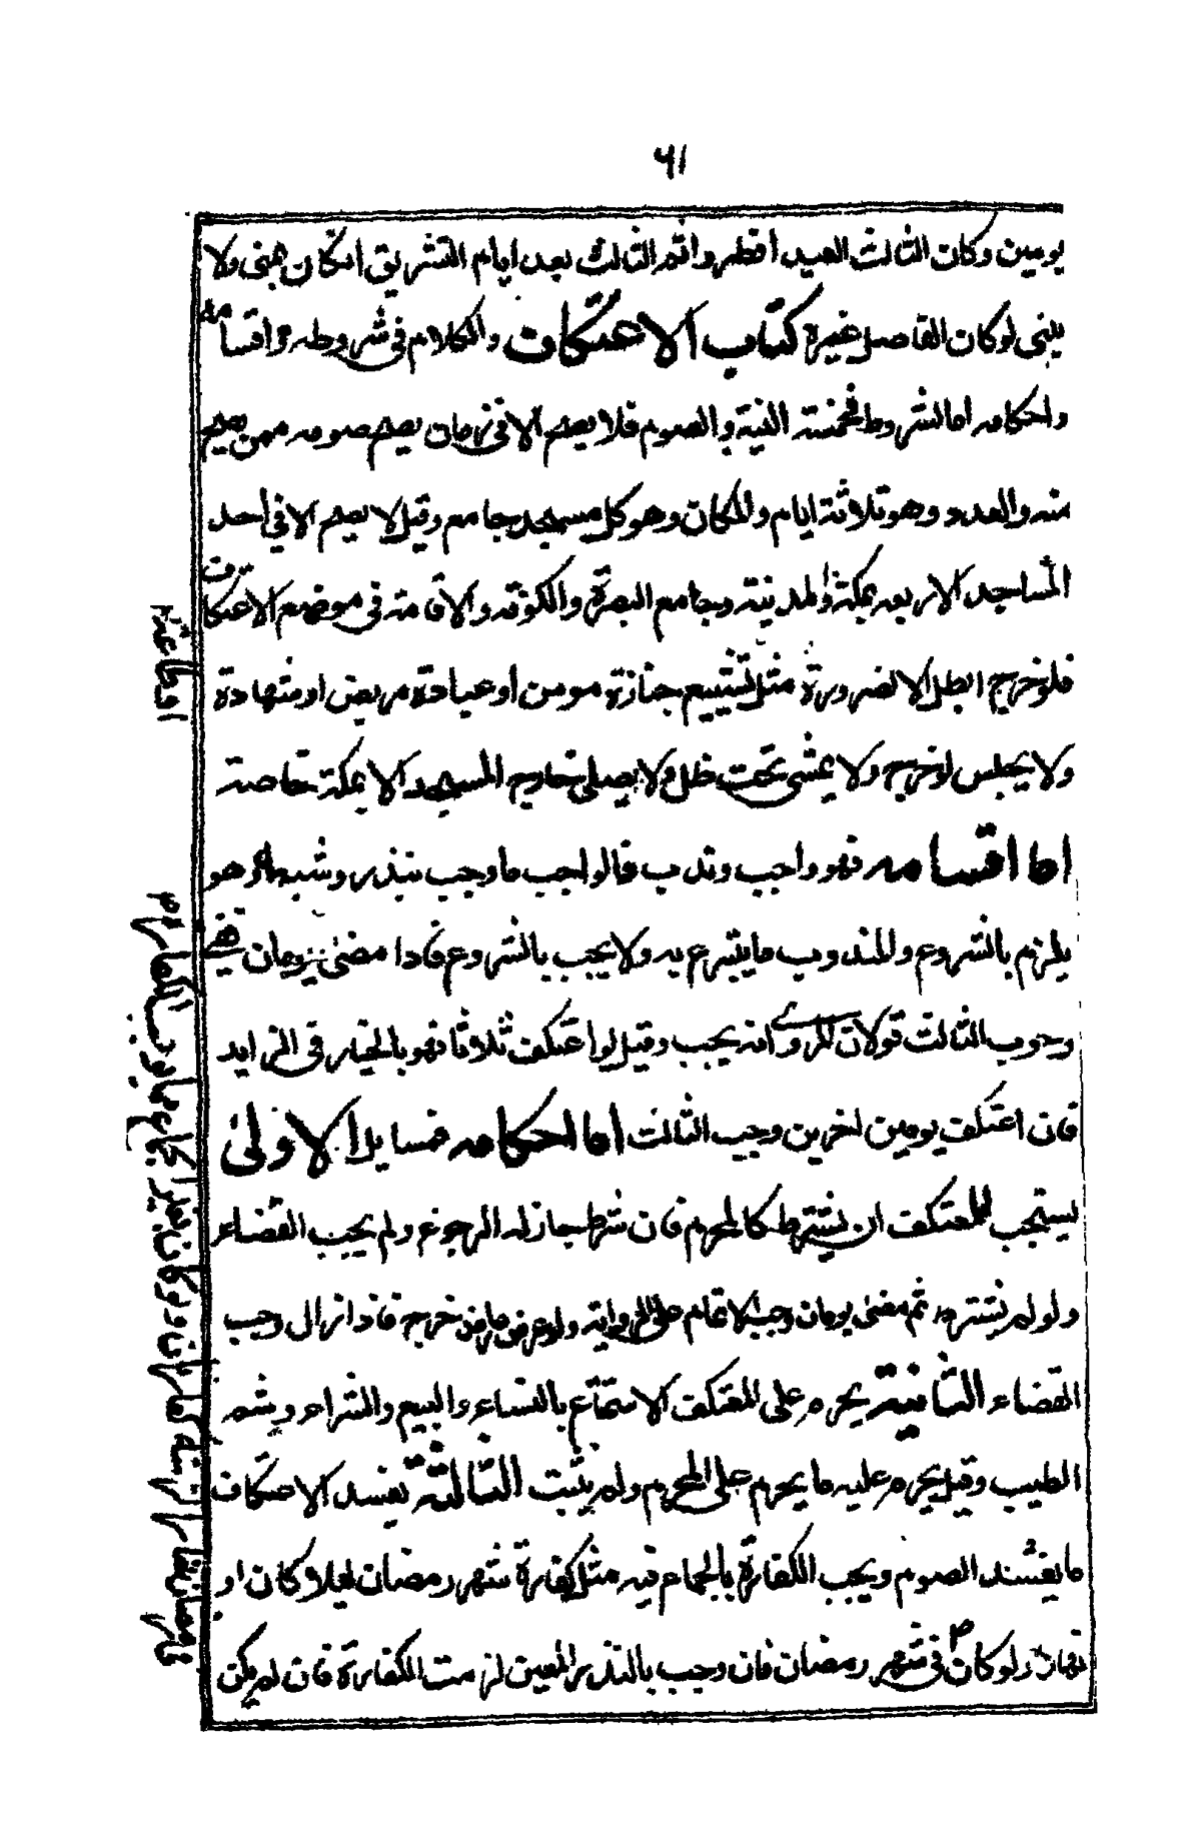 ٦١
يومين وكان الثالث العيد افطر واتم الثالث بعد ايام التشريق انكان بمنى ولا
يبنى لوكان الفاصل غيره كتاب الاعتكاف والكلام فى شروطه واقسامه
واحكامه اما الشروط فخمسته النية والصوم فلا يصح الا فى زمان يصح صومه ممن يصح
منه والعدد وهو ثلاثة ايام والمكان وهو كل مسجد جامع وقيل لا يصح الا في احد
المساجد الاربعه بمكة والمدينة وجامع البصرة والكوفه والاقامة فى موضع الاعتكاف
فلو خرج ابطل الا لضرورة مثل تشييع جنازة مومن او عيادة مريض او شهادة
ولا يجلس لو خرج ولا يمشى تحت ظل ولا يصلى خارج المسجد الا بمكة خاصة
اما اقسامه فهو واجب وندب فالواجب ما وجب بنذر وشبهه وهو
يلزم بالشروع والمندوب ما يتبرع به ولا يجب بالشروع فاذا مضى يومان ففى
وجوب الثالث قولان المروى انه يجب وقيل لو اعتكف ثلاثا فهو بالخيار فى الزايد
فان اعتكف يومين اخرين وجب الثالث اما احكامه فمسايل الاولى
يستحب للمعتكف ان يشترط كالمحرم فان شرط جاز له الرجوع ولم يجب القضاء
ولو لم يشترط ثم مضى يومان وجب الاتمام على الرواية ولو عرض عارض خرج فاذا زال وجب
القضاء الثانية يحرم على المعتكف الاستمتاع بالنساء والبيع والشراء وشم
الطيب وقيل يحرم عليه ما يحرم على المحرم ولم يثبت الثالثة يفسد الاعتكاف
ما يفسد الصوم ويجب الكفارة بالجماع فيه مثل كفارة شهر رمضان ليلا كان او
نهارا ولو كان فى شهر رمضان فان وجب بالنذر المعين لزمت الكفارة فان لم يكن